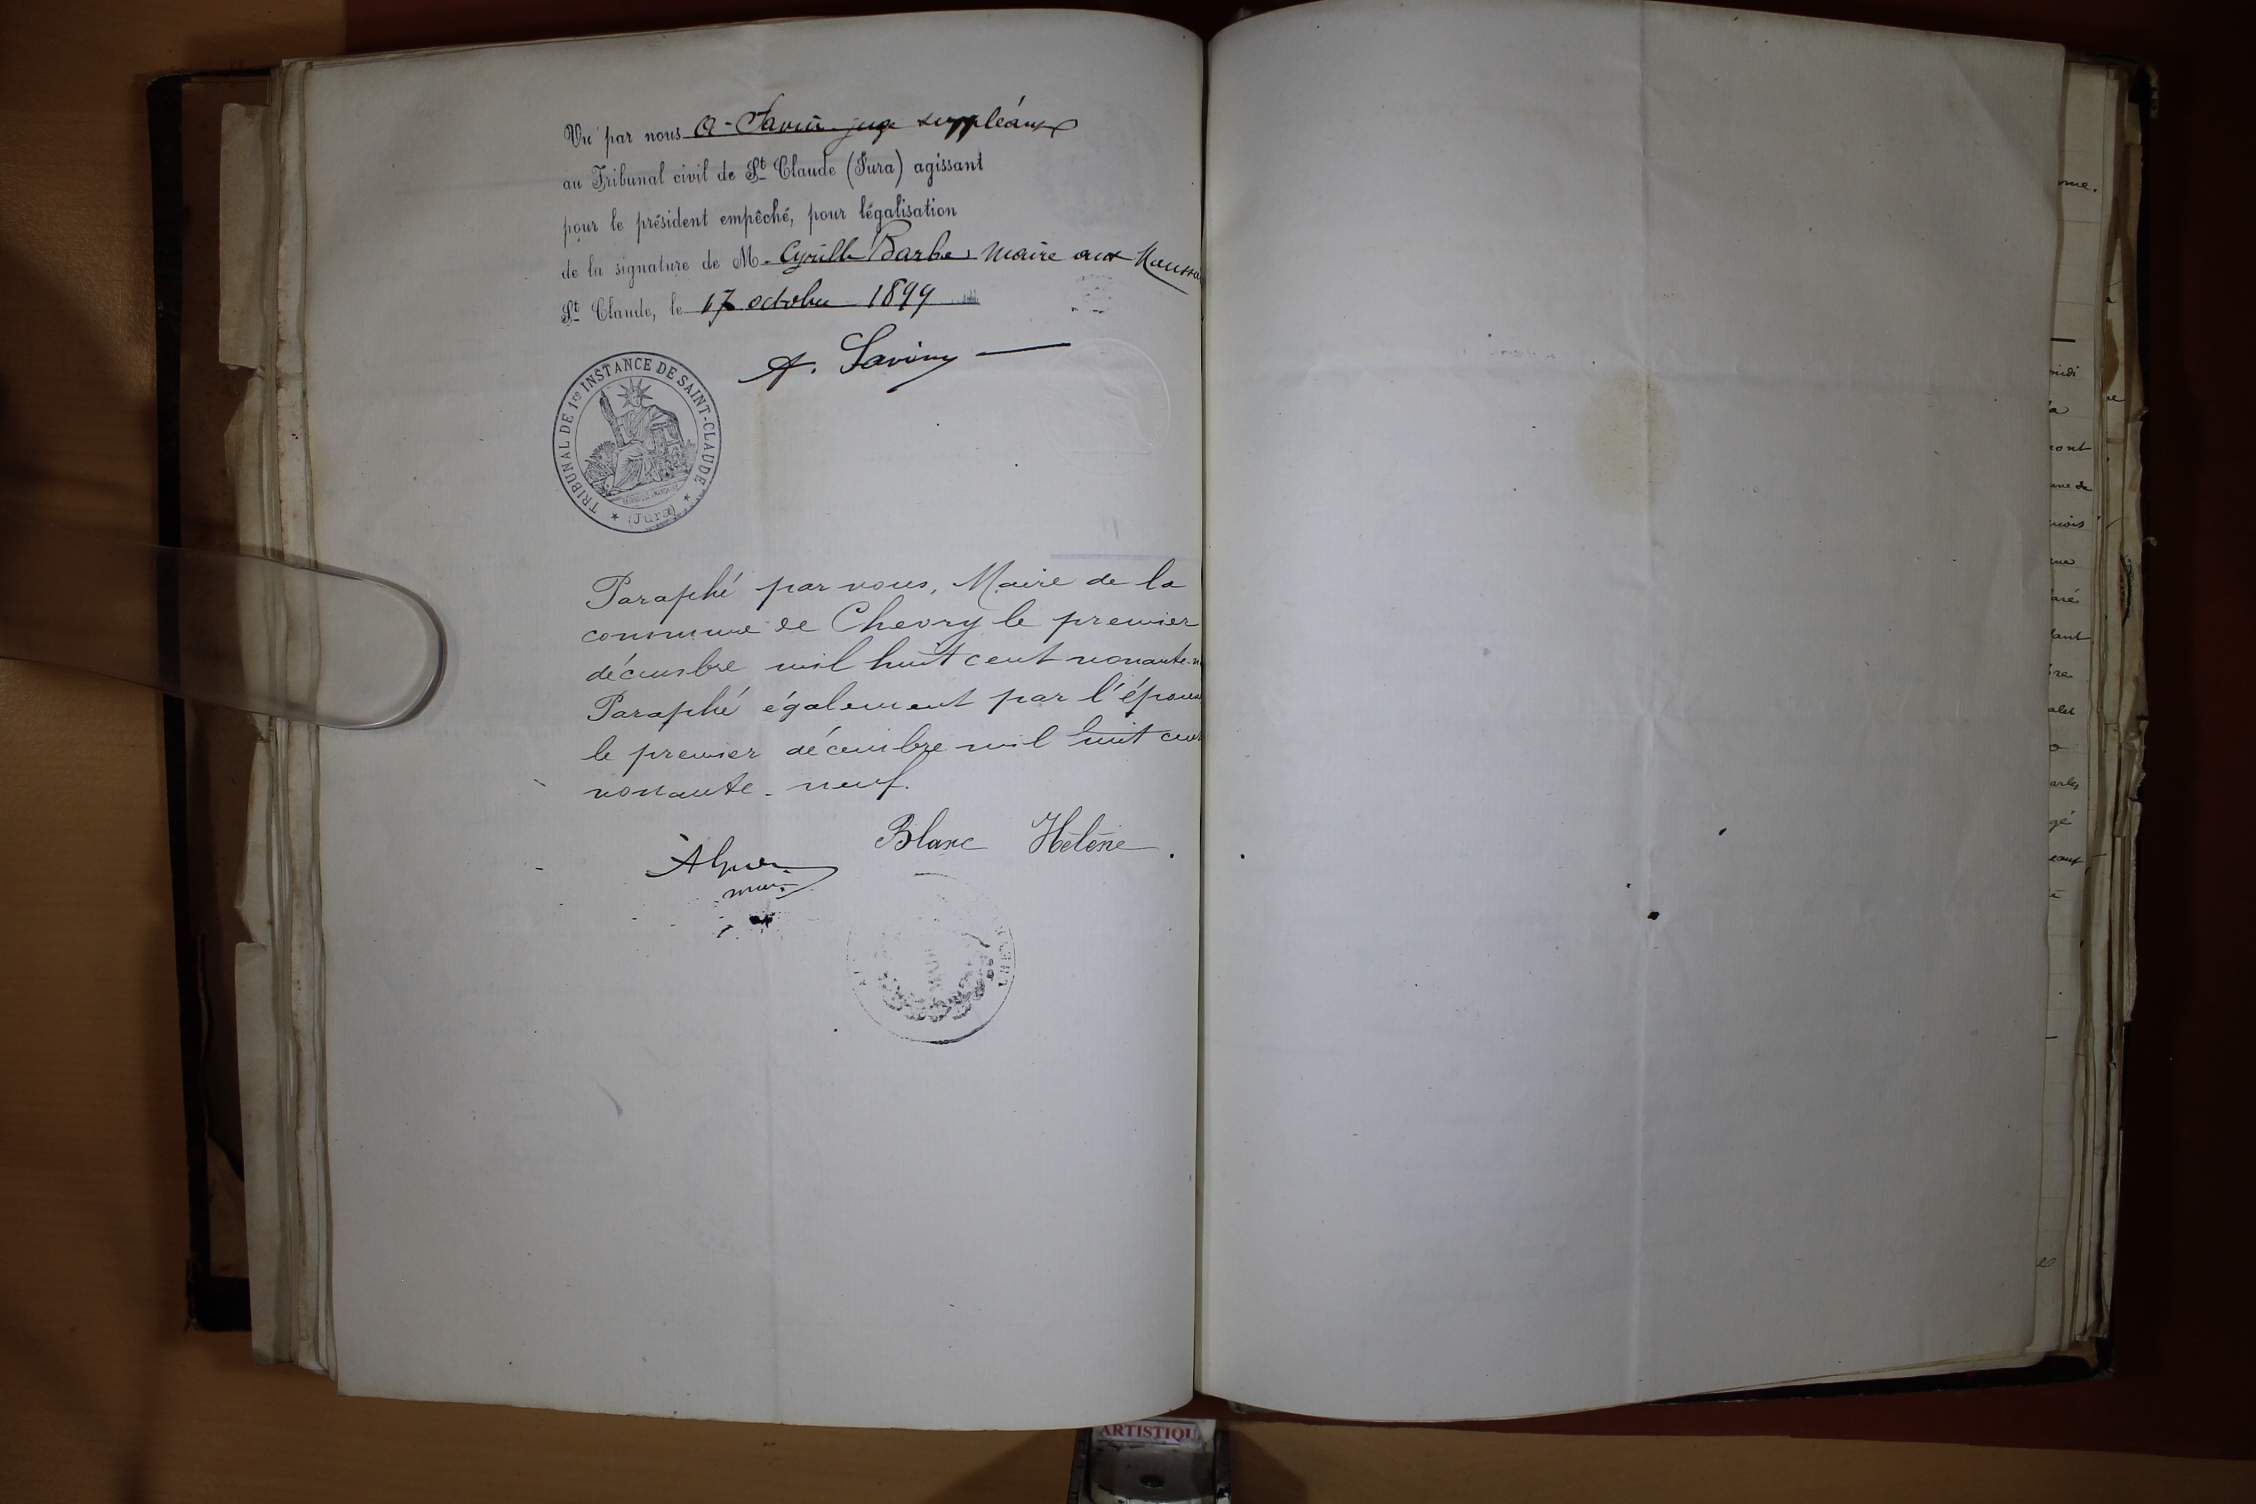 Vu par nous A. Savin juge suppléant
au Tribunal civil de St Claude (Jura) agissant
pour le président empêché, pour légalisation
de la signature de M. Cyrille Barbe, Maire aux
St Claude, le 17 octobre 1899
A. Saviny
TRIBUNAL DE 1re INSTANCE DE SAINT-CLAUDE
(Jura)
Paraphé par nous, Maire de la
commune de Chevry le premier
décembre mil huit cent nonante-n
Paraphé également par l'épouse
le premier décembre mil huit cent
nonante-neuf.
Blanc Hélène.
ARTISTIQU